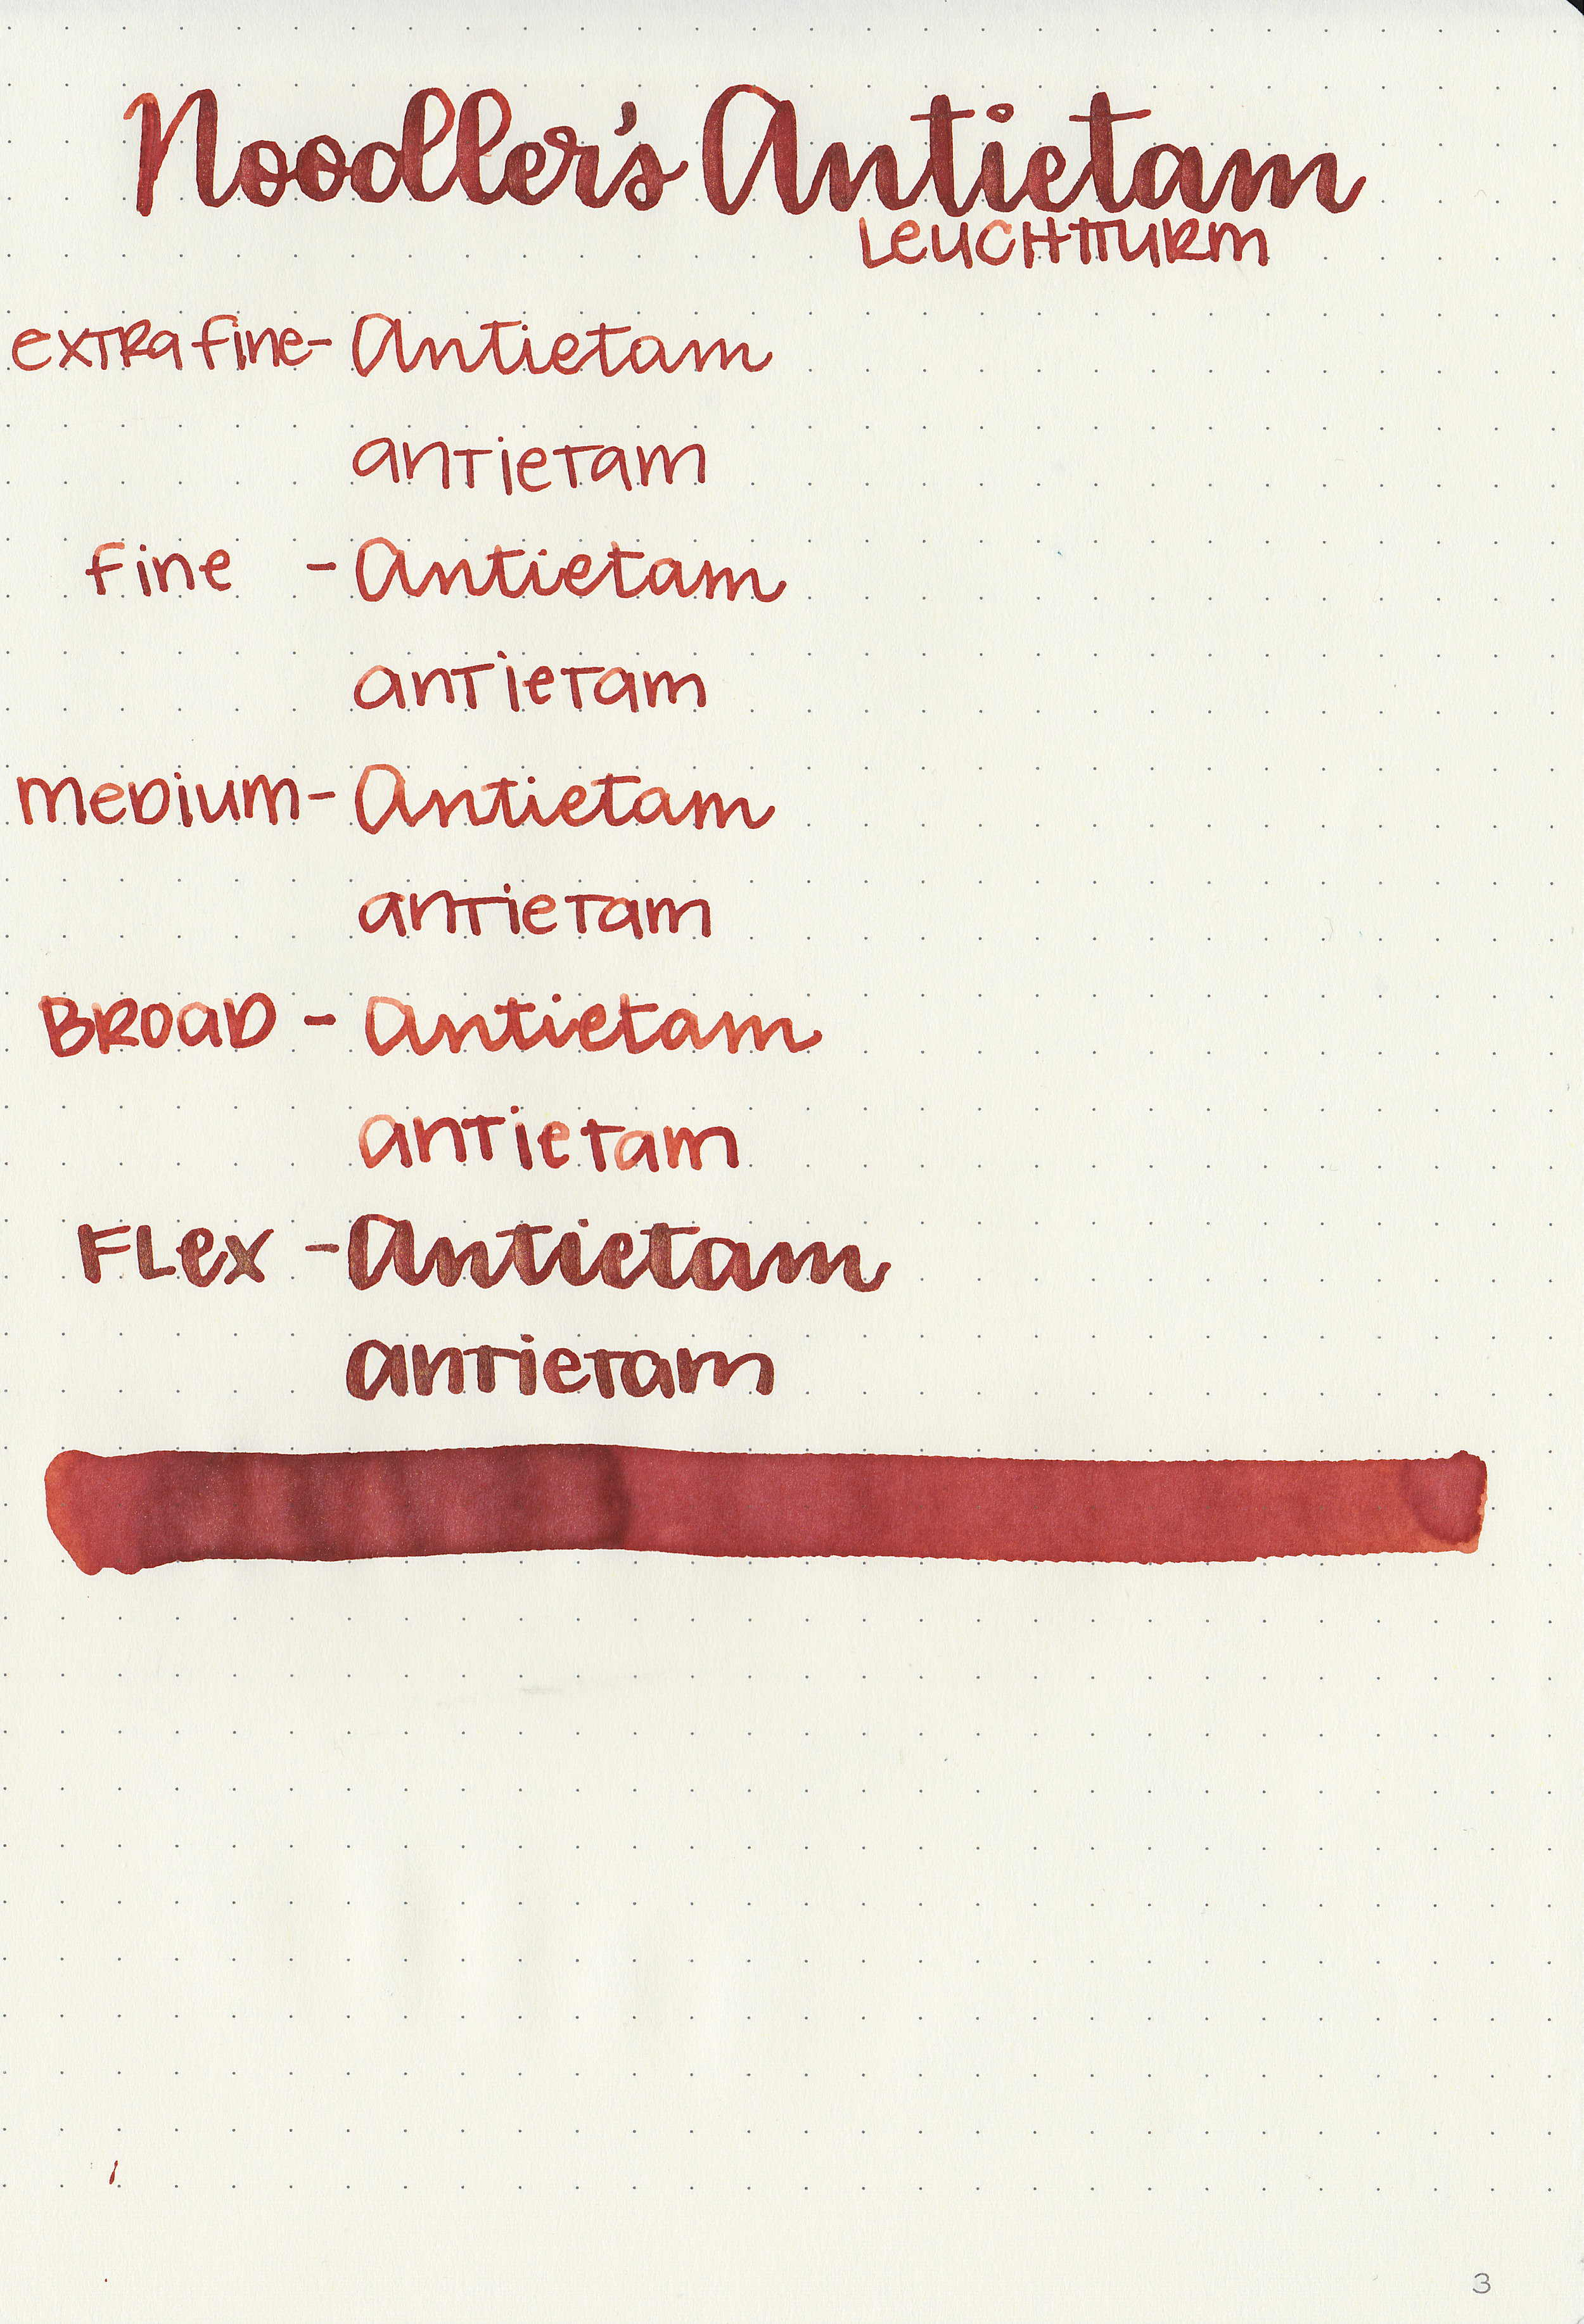 Noodler's Antietam
LEUCHTTURM
EXTRA FINE- Antietam
antietam
FINE - Antietam
antietam
MEDIUM- Antietam
antietam
BROAD - Antietam
antietam
FLEX - Antietam
antietam
3